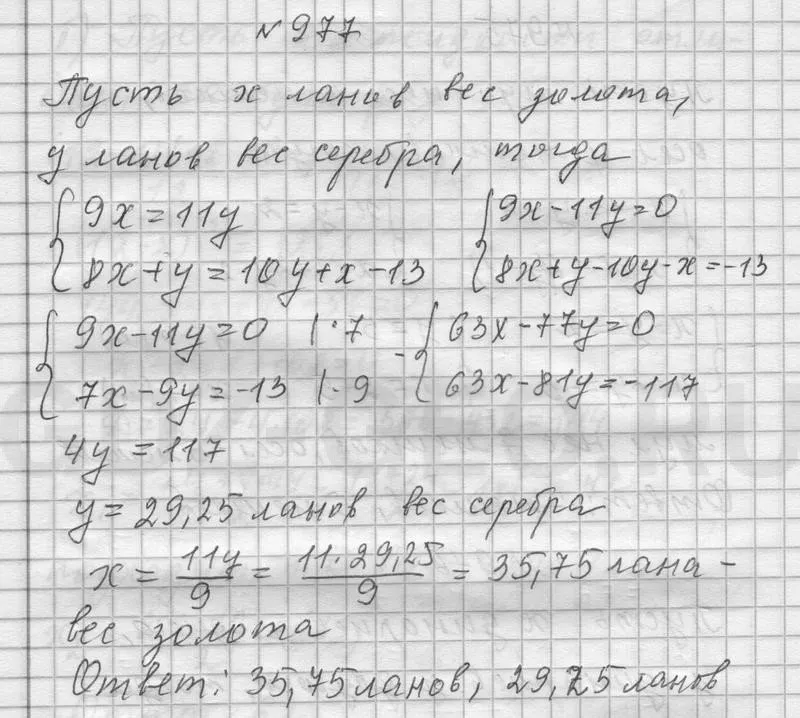 № 977
Пусть x ланов вес золота,
y ланов вес серебра, тогда
{ 9x = 11y
8x + y = 10y + x - 13
{ 9x - 11y = 0
8x + y - 10y - x = -13
{ 9x - 11y = 0 | · 7
7x - 9y = -13 | · 9
- { 63x - 77y = 0
63x - 81y = -117
4y = 117
y = 29,25 ланов вес серебра
x = 11y/9 = 11 · 29,25/9 = 35,75 лана -
вес золота
Ответ: 35,75 ланов, 29,25 ланов